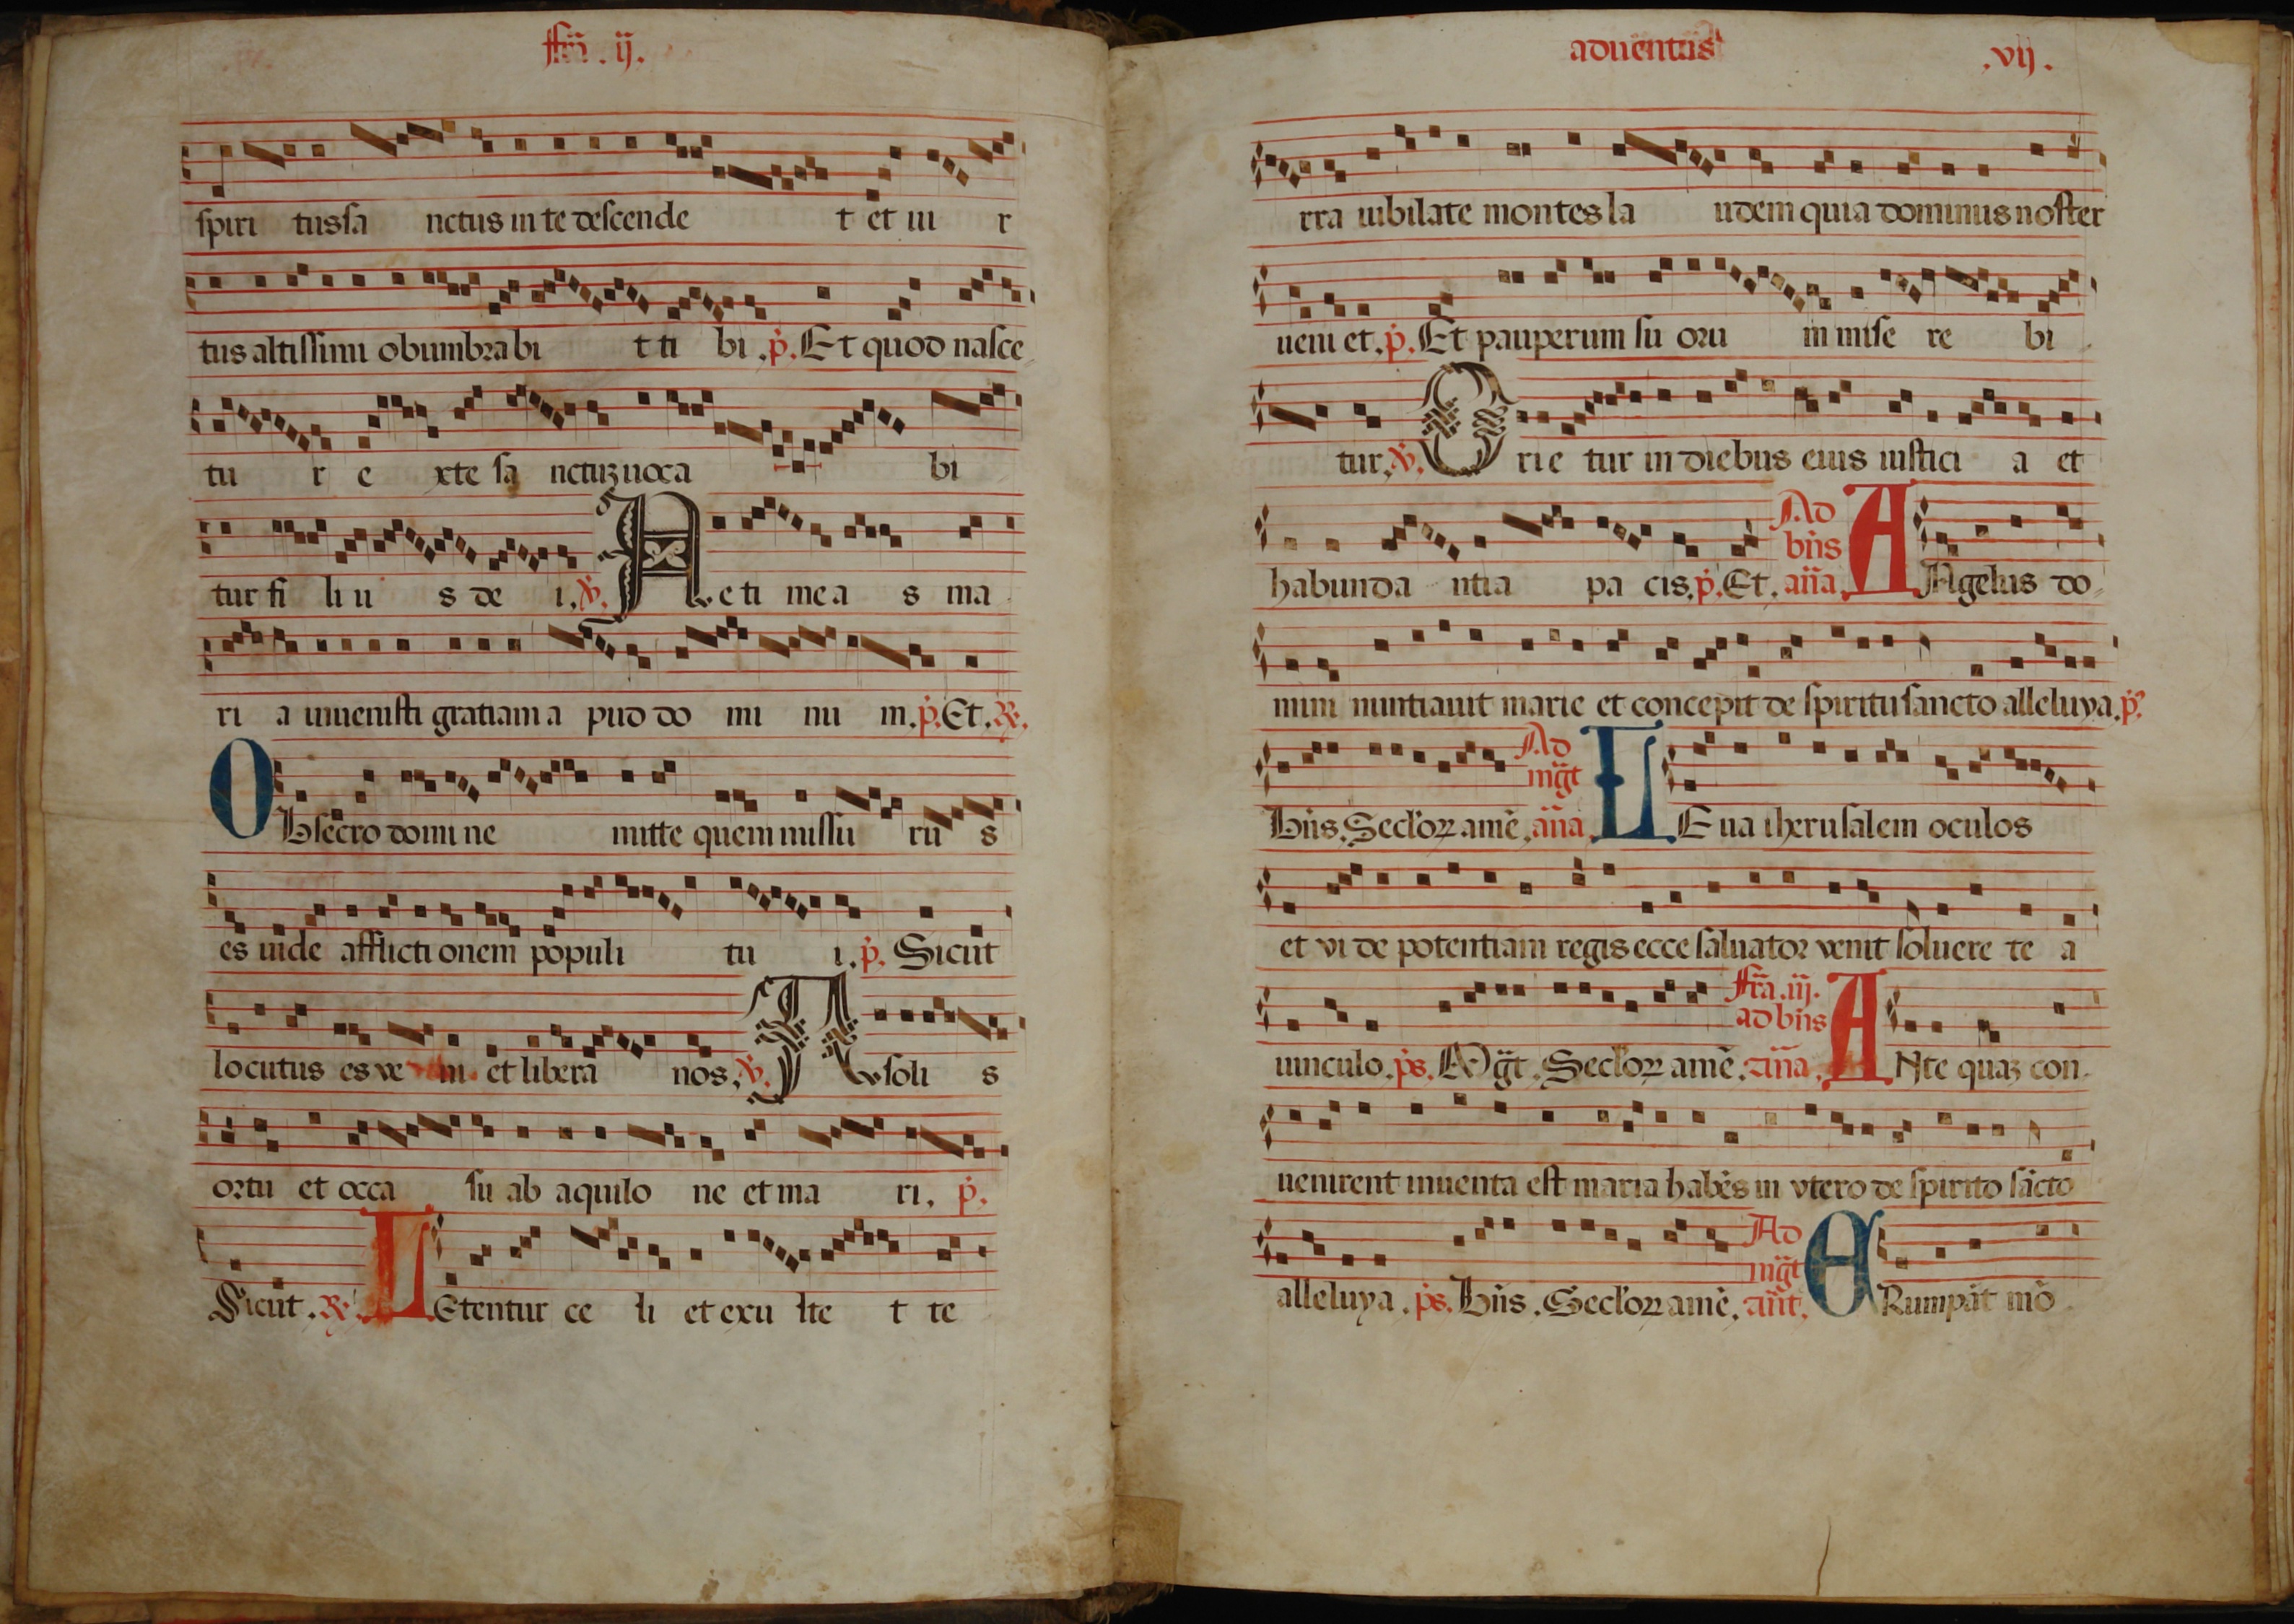 fr̃a .ij.
spiri tus sa nctus in te descende t et ui r
tus altissimi obumbrabi t ti bi .p̃. Et quod nasce
tu r e xte sa nctuꝫ uoca bi
tur fi li u s de i. ℣. A ue ti me a s ma
ri a inuenisti gratiam a pud do mi nu m. p̃. Et. ℟.
OBsecro domi ne mitte quem missu ru s
es uide afflicti onem populi tu i. p̃. Sicut
locutus es ve ni et libera nos. ℣. A soli s
ortu et occa su ab aquilo ne et ma ri. p̃.
Sicut. ℟. LEtentur ce li et exu lte t te
aduentus .vij.
rra iubilate montes la udem quia dominus noster
ueni et. p̃. Et pauperum su oru m mise re bi
tur. ℣. Orie tur in diebus eius iustici a et
habunda ntia pa cis. p̃. Et. Ad bñs añа. ANgelus do
mini nuntiauit marie et concepit de spiritu sancto alleluya. p̃s.
Bñs. Seclõꝝ amẽ. Ad mg̃t añа. LEua iherusalem oculos
et vi de potentiam regis ecce saluator venit soluere te a
uinculo. p̃s. Mg̃t. Seclõꝝ amẽ. fr̃a .iij. ad bñs añа. ANte quaꝫ con
uenirent inuenta est maria habẽs in vtero de spirito sãcto
alleluya. p̃s. Bñs. Seclõꝝ amẽ. Ad mg̃t añt. ERumpãt mõ